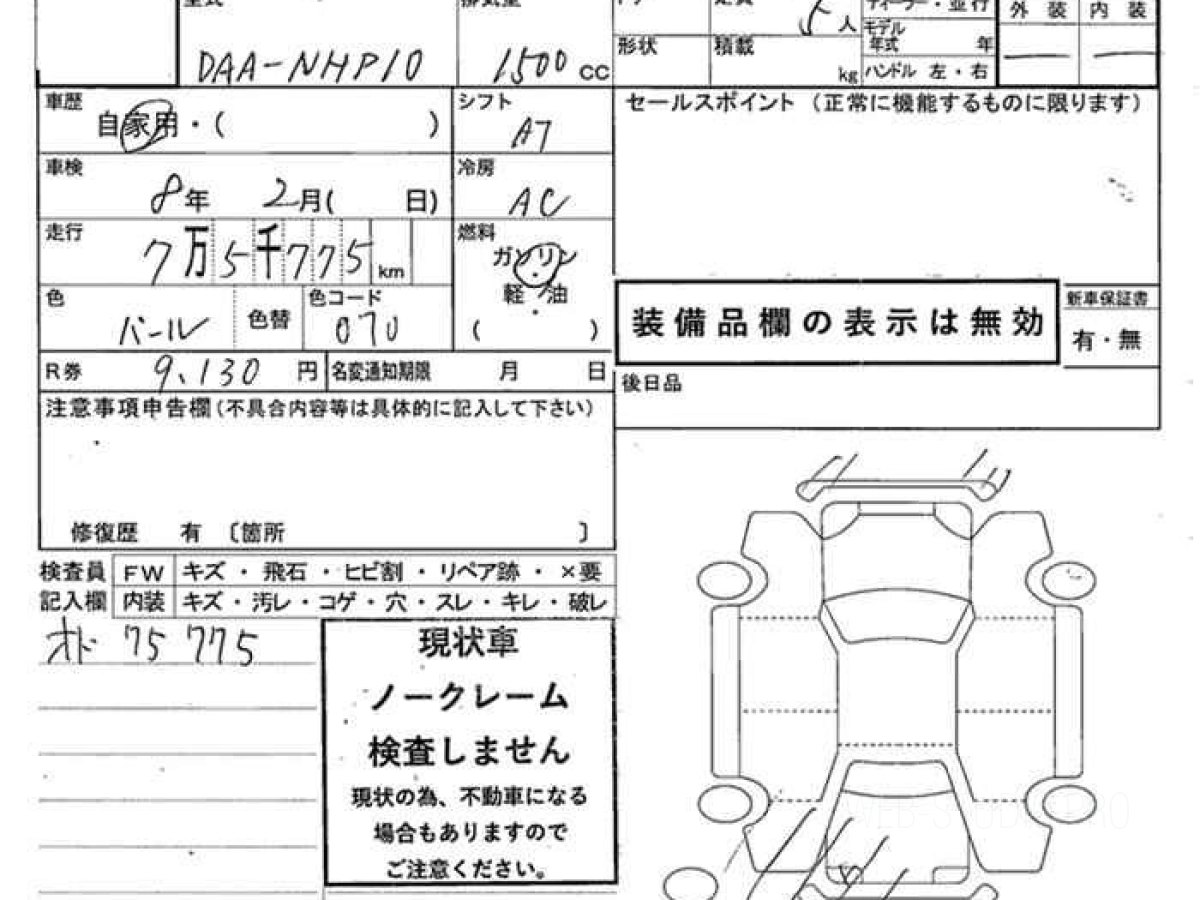 DAA-NHP10
1500 cc
5人
モデル
年式 年
外装 内装
形状
積載 kg
ハンドル 左・右
車歴 自家用・( )
シフト AT
セールスポイント（正常に機能するものに限ります）
車検 8年 2月( 日)
冷房 AC
走行 7万5千775 km
燃料 ガソリン
軽油
( )
色 パール
色替
色コード 070
装備品欄の表示は無効
新車保証書
有・無
R券 9,130 円
名変通知期限 月 日
後日品
注意事項申告欄(不具合内容等は具体的に記入して下さい)
修復歴 有 〔箇所 〕
検査員
記入欄
FW キズ・飛石・ヒビ割・リペア跡・×要
内装 キズ・汚レ・コゲ・穴・スレ・キレ・破レ
オド 75 775
現状車
ノークレーム
検査しません
現状の為、不動車になる
場合もありますので
ご注意ください。